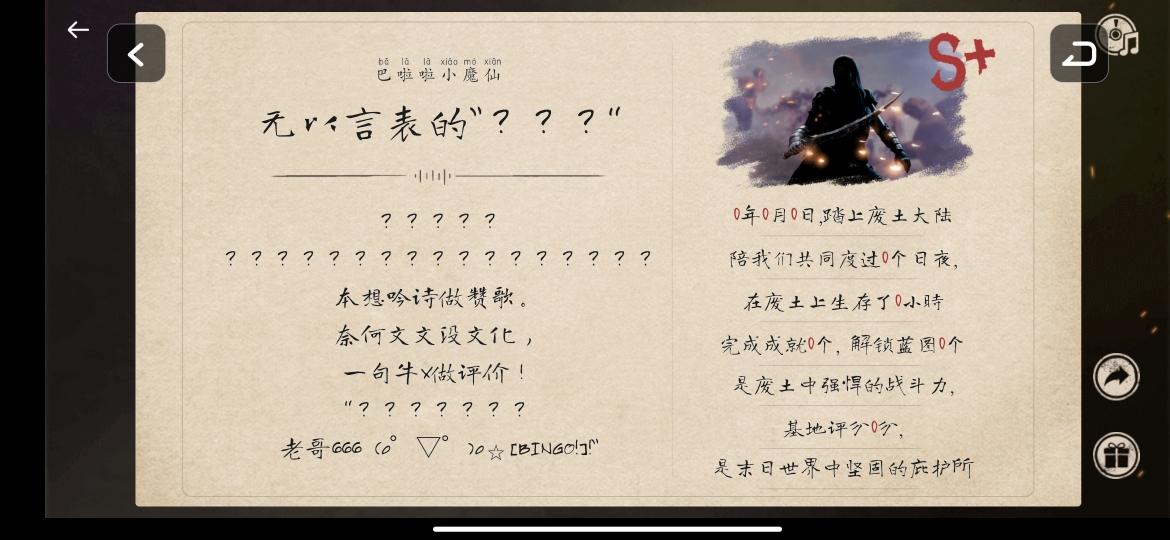 bā lā lā xiǎo mó xiān
巴啦啦小魔仙
无以言表的"???"
?????
?????????????????
本想吟诗做赞歌。
奈何文文没文化，
一句牛x做评价！
"???????
老哥666 (o゜▽゜)o☆[BINGO!]"
S+
0年0月0日,踏上废土大陆
陪我们共同度过0个日夜,
在废土上生存了0小時
完成成就0个, 解锁蓝图0个
是废土中强悍的战斗力,
基地评分0分,
是末日世界中坚固的庇护所